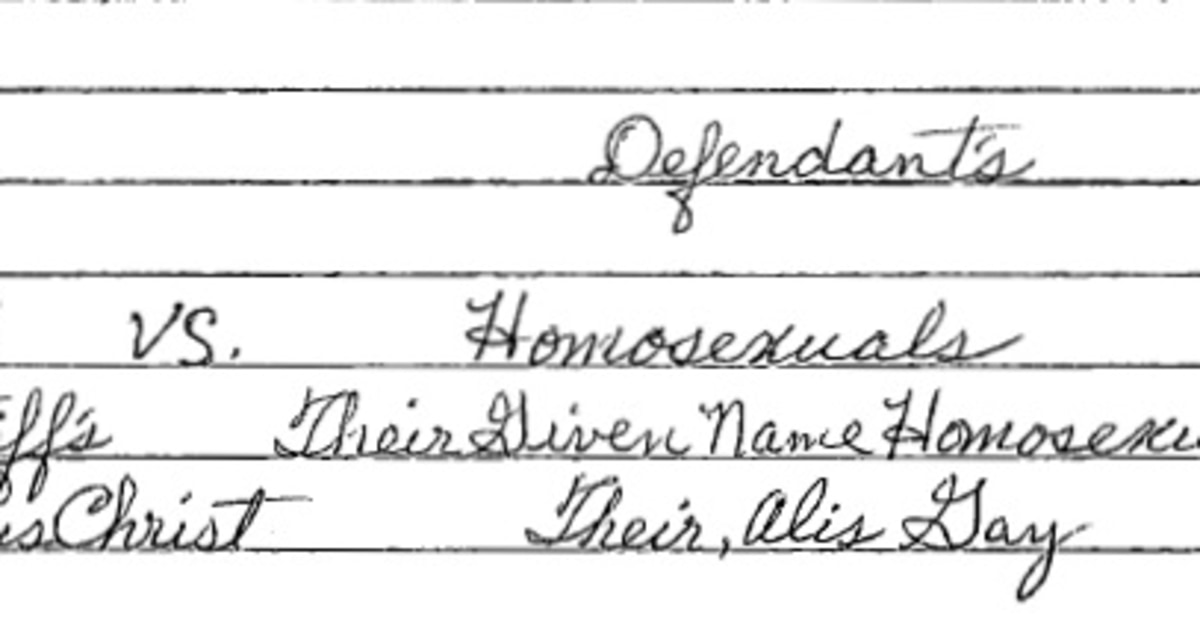 Defendant's
VS. Homosexuals
Their Given Name
Christ Their, Alis Gay